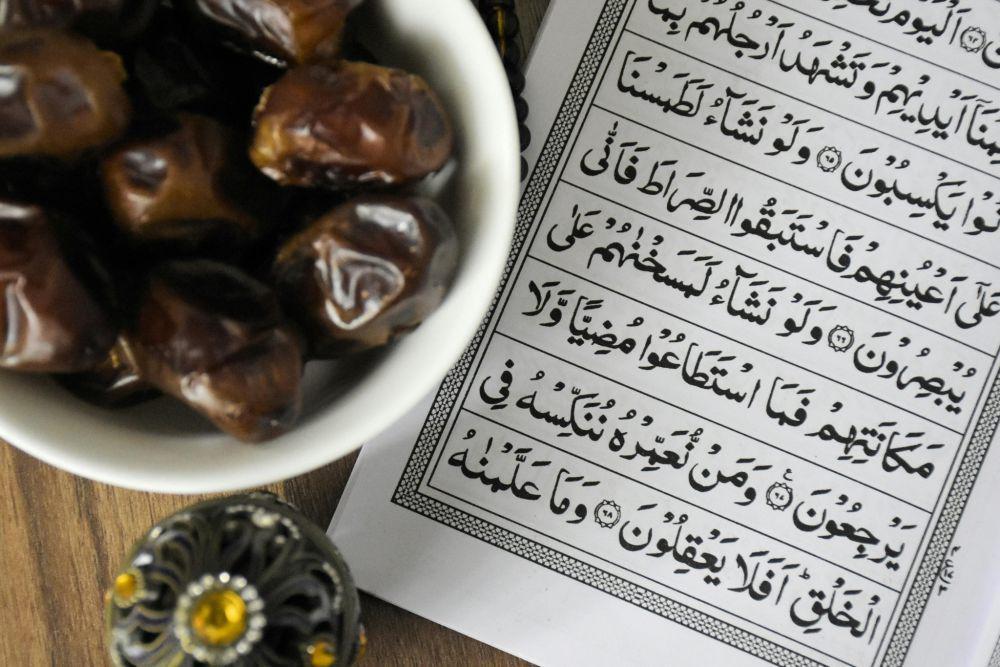 اَلْيَوْمَ
اَيْدِيْهِمْ وَتَشْهَدُ اَرْجُلُهُمْ بِمَا
نُوْا يَكْسِبُوْنَ ﴿٦٥﴾ وَلَوْ نَشَآءُ لَطَمَسْنَا
عَلٰۤى اَعْيُنِهِمْ فَاسْتَبَقُوا الصِّرَاطَ فَاَنّٰى
يُبْصِرُوْنَ ﴿٦٦﴾ وَلَوْ نَشَآءُ لَمَسَخْنٰهُمْ عَلٰى
مَكَانَتِهِمْ فَمَا اسْتَطَاعُوْا مُضِيًّا وَّلَا
يَرْجِعُوْنَ ﴿٦٧﴾ ع وَمَنْ نُّعَمِّرْهُ نُنَكِّسْهُ فِى
الْخَلْقِ ؕ اَفَلَا يَعْقِلُوْنَ ﴿٦٨﴾ وَمَا عَلَّمْنٰهُ